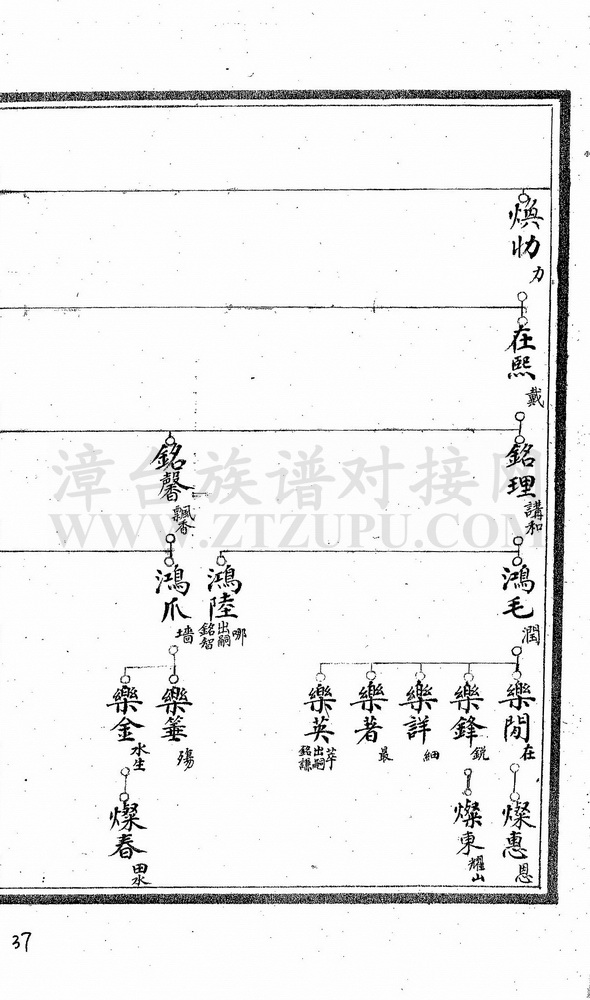 煥㔹
力
在熙
戴
銘理
講和
銘馨
飄香
鴻毛
潤
鴻陸
哪
出嗣
銘智
鴻爪
墻
樂閒
在
樂鋒
銳
樂詳
細
樂著
最
樂英
萃
出嗣
銘謙
樂箠
殤
樂金
水生
燦惠
恩
燦東
耀山
燦春
田水
漳台族谱对接网
WWW.ZTZUPU.COM
37